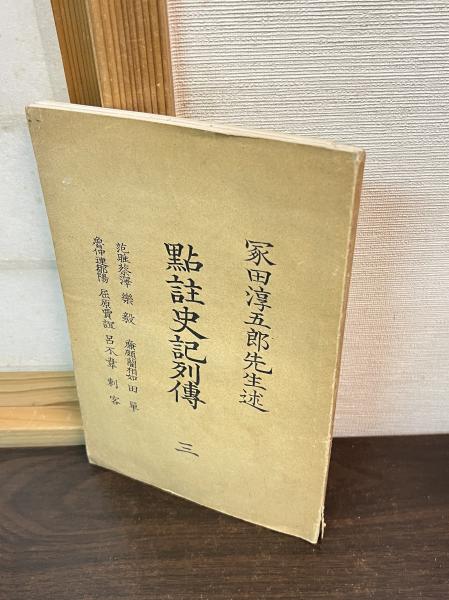 冢田淳五郎先生述
點註史記列傳 三
范雎蔡澤 樂毅 廉頗藺相如 田單
魯仲連鄒陽 屈原賈誼 呂不韋 刺客